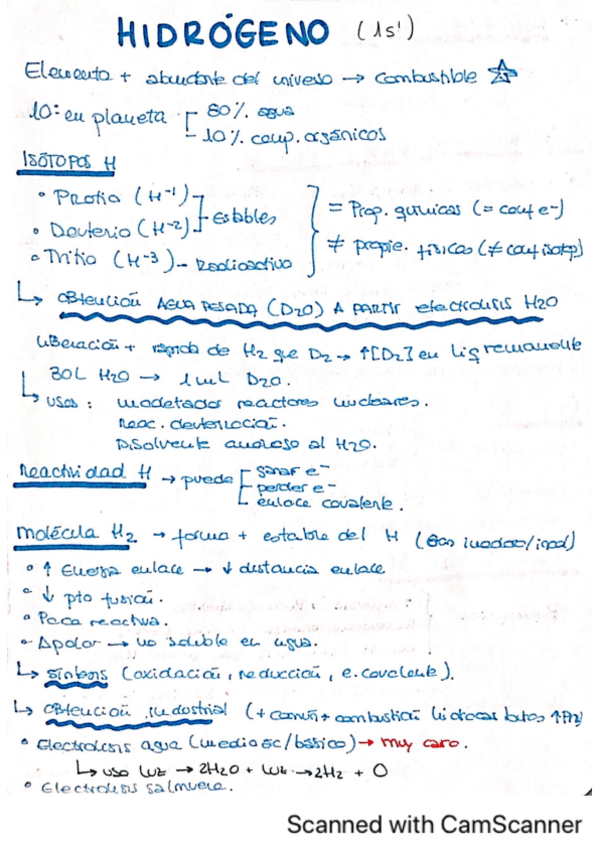 HIDRÓGENO (1s¹)
Elemento + abundante del universo → combustible ☆
10º en planeta [ 80% agua
10% comp. orgánicos
ISÓTOPOS H
• Protio (H-1)
• Deuterio (H-2) - Estables
• Tritio (H-3) - Radioactivo
= Prop. químicas (= conf e-)
≠ propie. físicas (≠ conf isotop)
↳ OBtención AGUA PESADA (D2O) A PARTIR electrolisis H2O
liberación + rápida de H2 que D2 → ↑[D2] en liq remanente
30L H2O → 1mL D2O.
↳ usos: moderador reactores nucleares.
Reac. deuteración.
Disolvente análogo al H2O.
Reactividad H → puede [ ganar e-
perder e-
enlace covalente.
molécula H2 → forma + estable del H (Gas incoloro/inod)
• ↑ Energía enlace → ↓ distancia enlace
• ↓ pto fusión.
• Poca reactiva.
• Apolar → no soluble en agua.
↳ síntesis (oxidación, reducción, e. covalente).
↳ OBtención industrial (+ común + combustión hidrocarburos
• Electrolisis agua (medio ác/básico) → muy caro.
↳ uso luz → 2H2O + luz → 2H2 + O
• Electrolisis salmuera.
Scanned with CamScanner